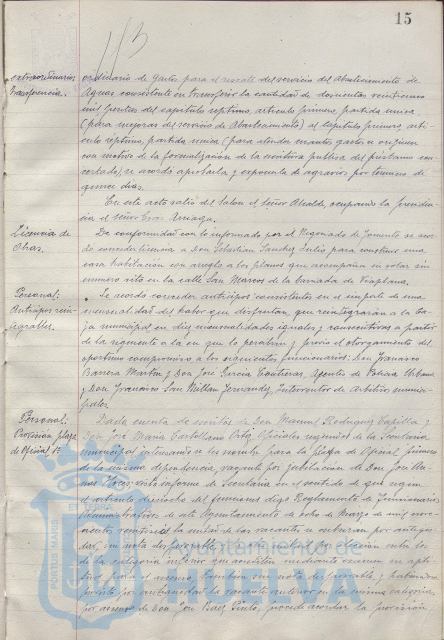 15
113
extraordinario.
Transferencia.
ordinario de gastos para el rescate del servicio del Abastecimiento de
Aguas consistente en transferir la cantidad de doscientas veinticinco
mil pesetas del capítulo séptimo, artículo primero, partida única
(para mejoras del servicio de Abastecimiento) al capítulo primero, artí-
culo séptimo, partida única (para atender cuantos gastos se originen
con motivo de la formalización de la escritura pública del préstamo con-
certado), se acordó aprobarla y exponerla de agravios por término de
quince días.
En este acto salió del Salón el Señor Alcalde, ocupando la Presiden-
cia el señor Arriaga.
Licencia de
Obras.
De conformidad con lo informado por el Negociado de Fomento se acor-
dó conceder licencia a Don Sebastián Sánchez Juliá para construir una
casa habitación con arreglo a los planos que acompaña en solar sin
número sito en la calle San Marcos de la barriada de Viaplana.
Personal:
Anticipos rein-
tegrables.
Se acordó conceder anticipos consistentes en el importe de una
mensualidad del haber que disfrutan, que reintegrarán a la Ca-
ja municipal en diez mensualidades iguales y consecutivas a partir
de la siguiente a la en que lo perciban y previo el otorgamiento del
oportuno compromiso a los siguientes funcionarios: Don Francisco
Barrera Martín y Don José García Contreras, Agentes de Policía Urbana
y Don Francisco San Millán Fernández, Interventor de Arbitrios munici-
pales.
Personal:
Provisión plaza
de Oficial 1º
Dada cuenta de escritos de Don Manuel Rodríguez Capilla y
Don José María Castellano Ortiz, Oficiales segundos de la Secretaría
municipal interesando se les nombre para la plaza de Oficial primero
de la misma dependencia, vacante por jubilación de Don José
visto informe de Secretaría en el sentido de que según
el artículo dieciocho del Reglamento de Funcionarios
Administrativos de este Ayuntamiento de ocho de Marzo de mil nove-
cientos veintiséis la mitad de las vacantes se cubrirán por antigüe-
dad, sin nota desfavorable, y la otra mitad por elección entre los
de la categoría inferior que acrediten mediante examen su apti-
tud para el ascenso, también sin nota desfavorable, y habiéndose
cubierto por antigüedad la vacante anterior en la misma categoría,
por ascenso de Don José Báez Pinto, procede acordar la provisión
PORTUS MARIS ET TERRAE
Ayuntamiento de
HUELVA